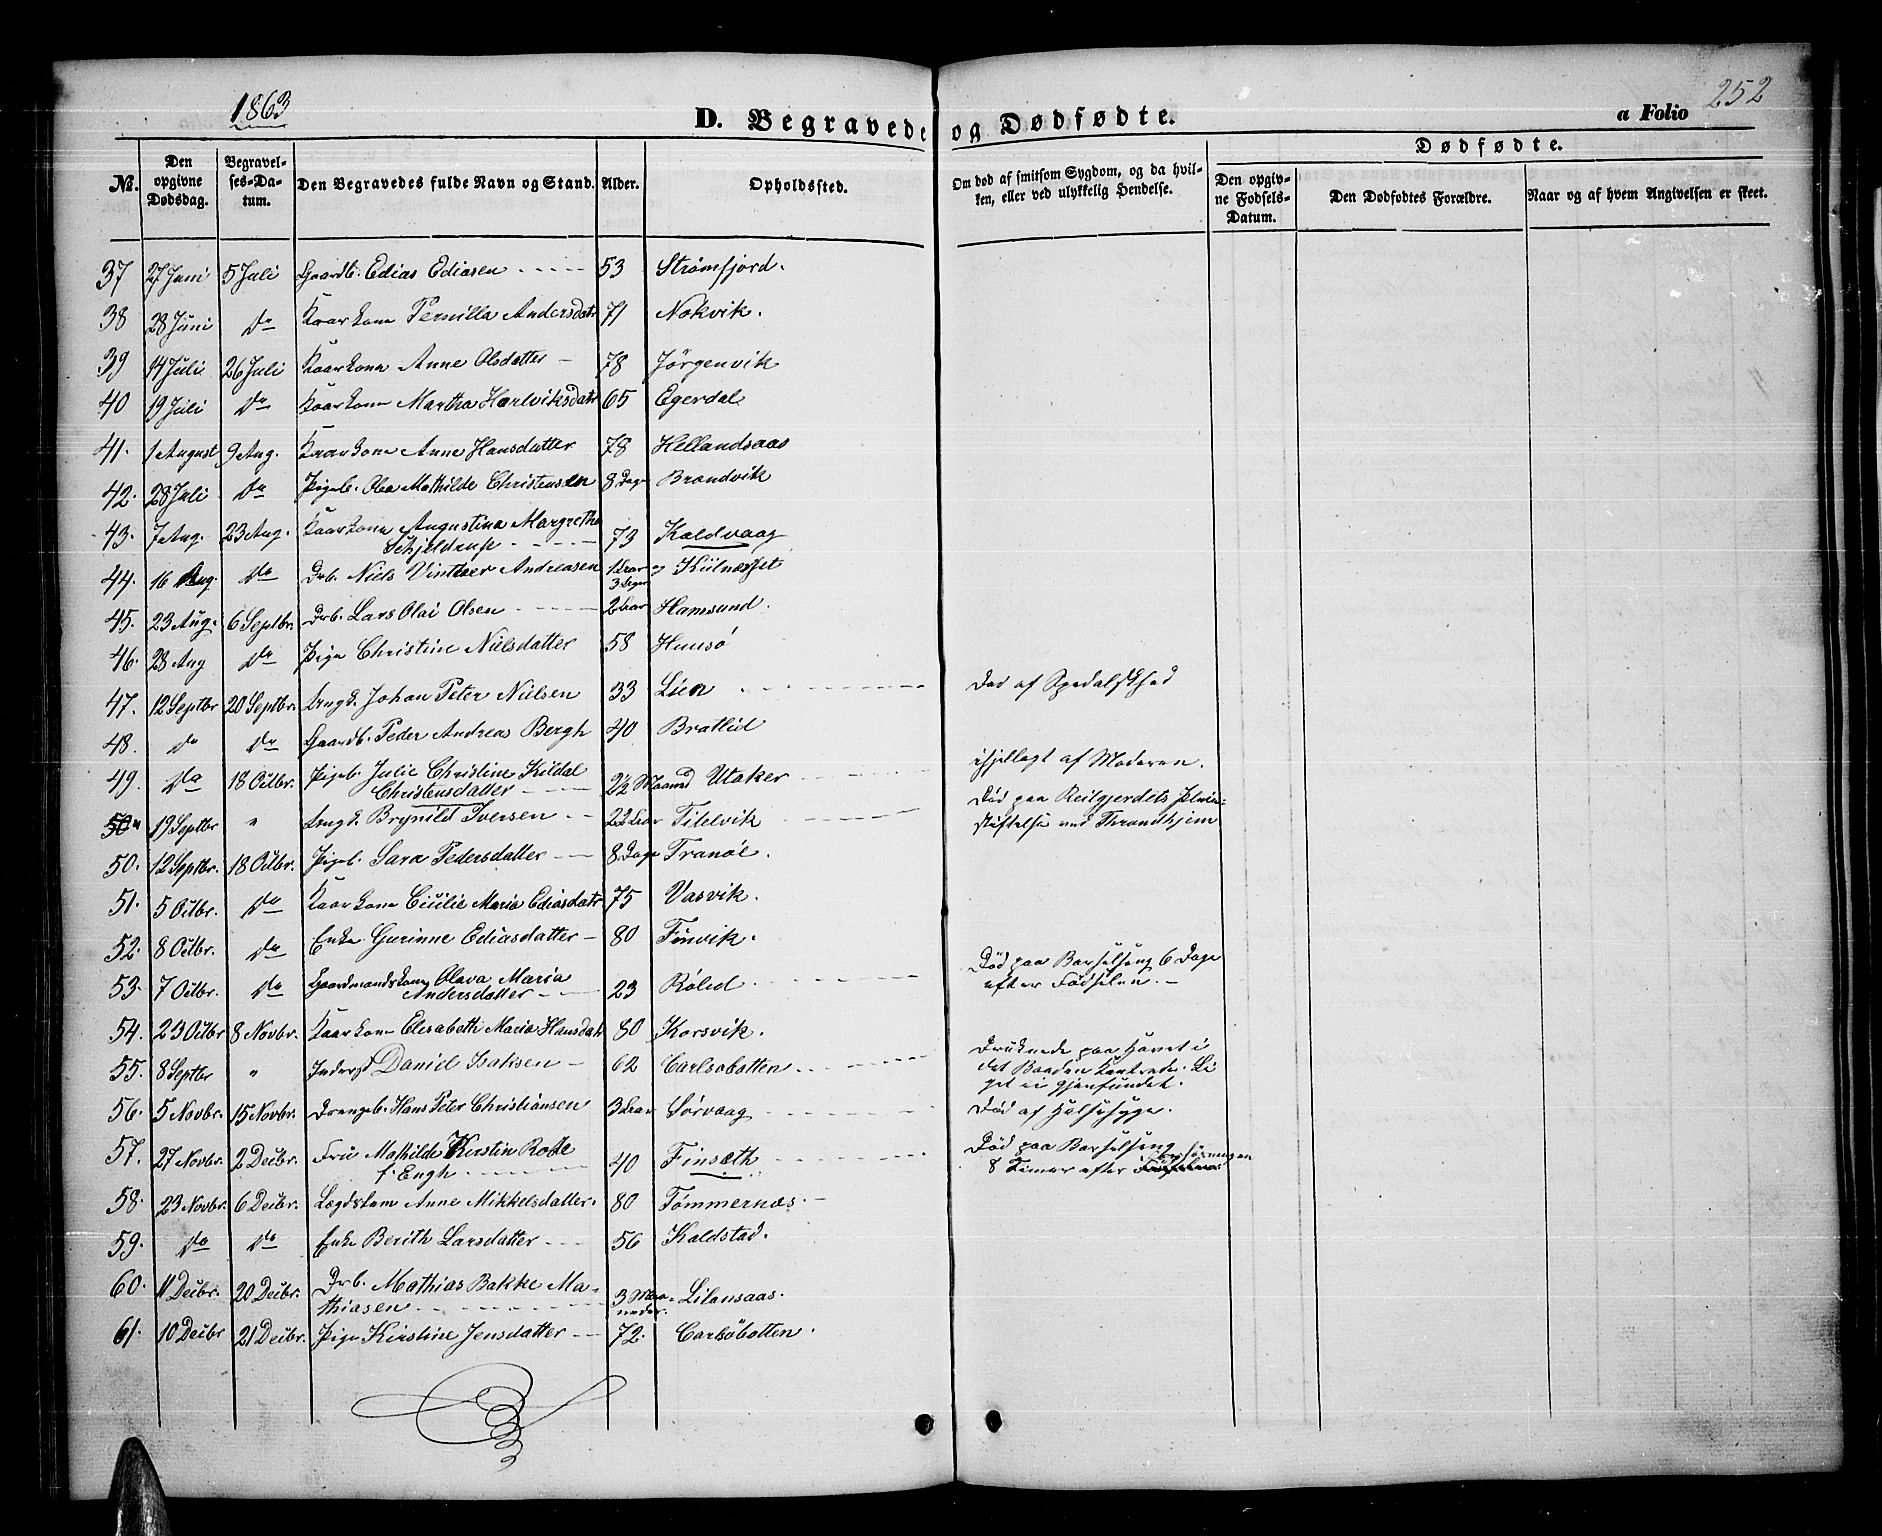 1863
D. Begravede og Dødfødte.
a Folio 252
No.
Den opgivne Dødsdag.
Begravelses-Datum.
Den Begravedes fulde Navn og Stand.
Alder.
Opholdssted.
Om død af smitsom Sygdom, og da hvilken, eller ved ulykkelig Hendelse.
Dødfødte.
Den opgivne Fødsels-Datum.
Den Dødfødtes Forældre.
Naar og af hvem Angivelsen er skeet.
37 27 Juni 5 Juli Gaardb. Edias Ediasen 53 Strømfjord.
38 28 Juni Do Kaarkone Pernilla Andersdatr 71 Nokvik.
39 14 Juli 26 Juli Kaarkone Anne Olsdatter 78 Jörgenvik
40 19 Juli Do Kaarkone Martha Hartviksdatr 65 Egerdal
41. 1 August 9 Aug. Kaarkone Anne Hansdatter 78 Hellandsaas
42. 28 Juli Do Pigeb. Olea Mathilde Christensen 8 Dage Brandvik
43. 7 Aug. 23 Aug. Kaarkone Augustina Margrethe
Schjeldrup 73 Kaldvaag
44. 16 Aug. Do Drb. Niels Vinther Andreasen 1 Aar og Kiilnæsset
3 Uger
45. 23 Aug. 6 Septbr. Drb. Lars Olai Olsen 2 Aar Hamsund.
46. 28 Aug Do Pige Christine Nielsdatter 58 Hunsö
47. 12 Septbr 20 Septbr. Ungk. Johan Peter Nielsen 33 Lien Død af Spedalskhed
48. Do Do Gaardb. Peder Andreas Bergh 40 Bratlid
49. Do 18 Octbr. Pigeb. Julie Christine Kildal
Christensdatter 2½ Maaned Utaker ihjellagt af Moderen.
50 " 19 Septbr " Ungk. Brynild Iversen 22 Aar Tilelvik Død paa Reitgjerdets Pleie-
stiftelse ved Throndhjem
50. 12 Septbr. 18 Octbr. Pigeb. Sara Pedersdatter 8 Dage Tranöe.
51. 5 Octbr. Do Kaarkone Cicilie Maria Ediasdatr 75 Vasvik.
52. 8 Octbr. Do Enke Gurinne Ediasdatter 80 Finvik.
53. 7 Octbr. Do Gaardmandskone Olava Maria
Andersdatter 23 Röled. Död paa Barselseng 6 Dage
efter Födselen.
54. 23 Octbr 8 Novbr. Kaarkone Elisabeth Maria Hansdatr 80 Korsvik.
55. 8 Septbr " Inderst Daniel Isaksen 62 Carlsøbotten Druknede paa Havet i
det Baaden kantrede. Li
get ei gjenfundet.
56. 5 Novbr. 15 Novbr. Drengeb. Hans Peter Christiansen 3 Aar Sörvaag Död af Halsesyge.
57. 27 Novbr. 2 Decbr. Fru Mathilde Kirstin Rode
f. Engh 40 Finsæth Död paa Barselseng
8 Timer efter Forlösningen
58. 23 Novbr. 6 Decbr. Lægdskone Anne Mikkelsdatter. 80 Tömmernæs.
59. Do Do Enke Berith Larsdatter 56 Kaldstad.
60. 11 Decbr. 20 Decbr. Drb. Mathias Bakke Ma-
thiasen 3 Maaneder. Lilansaas.
61. 10 Decbr 21 Decbr. Pige Kirstine Jensdatter 72. Carlsöbotten.